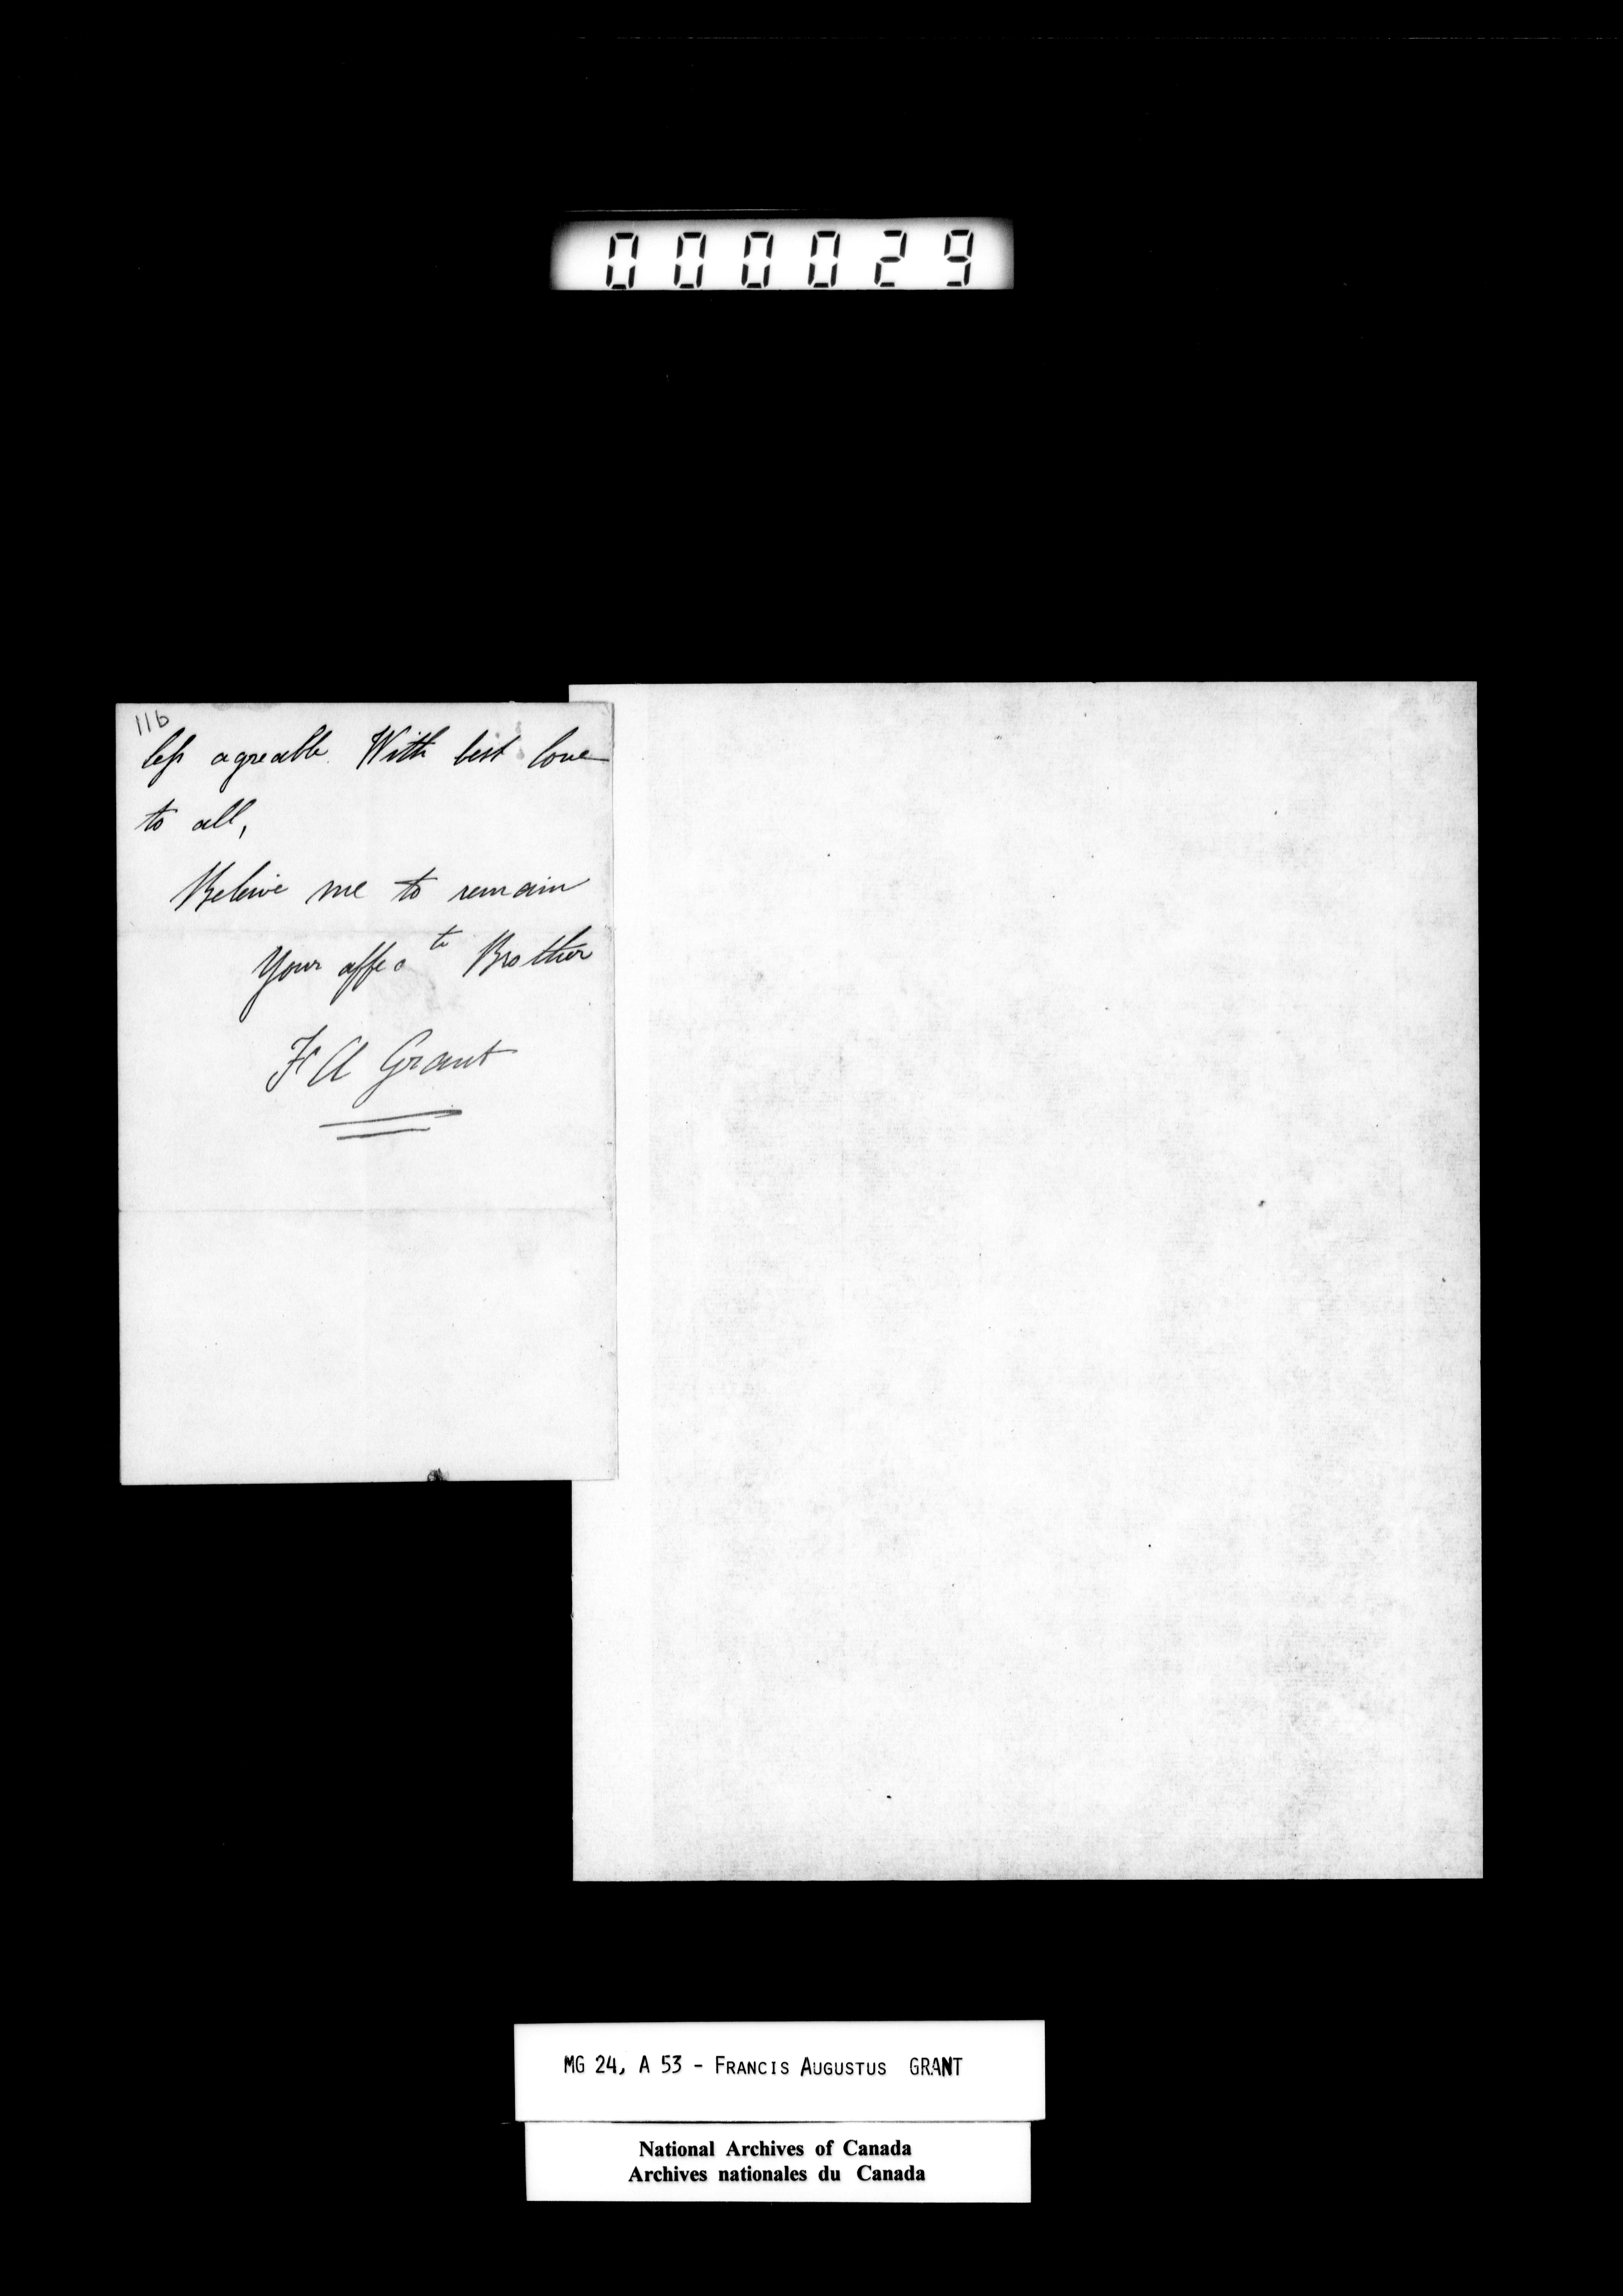 000029
116
less agreable. With best love
to all,
Beleive me to remain
Your affec te Brother
F A Grant
MG 24, A 53 - FRANCIS AUGUSTUS GRANT
National Archives of Canada
Archives nationales du Canada